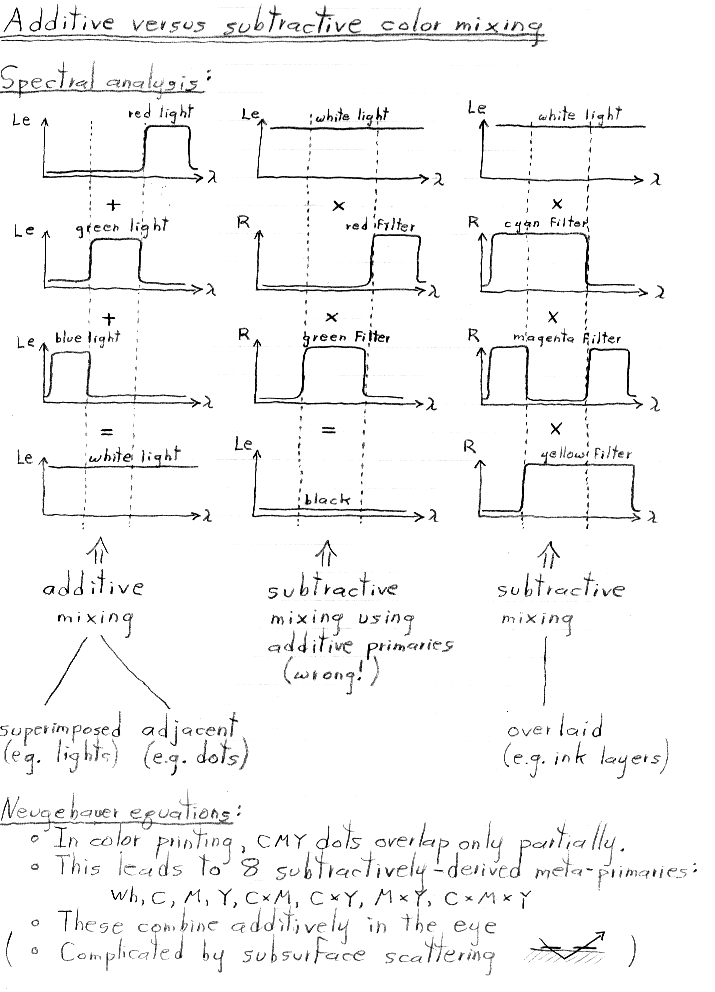 Additive versus subtractive color mixing
Spectral analysis:
Le red light λ
+
Le green light λ
+
Le blue light λ
=
Le white light λ
Le white light λ
×
R red filter λ
×
R green filter λ
=
Le black λ
Le white light λ
×
R cyan filter λ
×
R magenta filter λ
×
R yellow filter λ
additive
mixing
superimposed
(eg. lights)
adjacent
(e.g. dots)
subtractive
mixing using
additive primaries
(wrong!)
subtractive
mixing
overlaid
(e.g. ink layers)
Neugebauer equations:
° In color printing, CMY dots overlap only partially.
° This leads to 8 subtractively-derived meta-primaries:
Wh, C, M, Y, C×M, C×Y, M×Y, C×M×Y
° These combine additively in the eye
( ° Complicated by subsurface scattering )